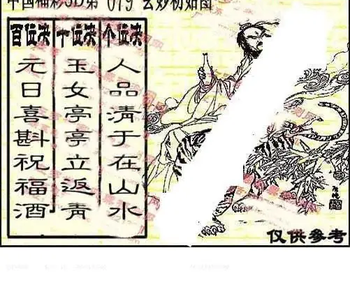 中国福彩3D第
百位诀
元日喜斟祝福酒
十位诀
玉女亭亭立返青
个位诀
人品清于在山水
仅供参考